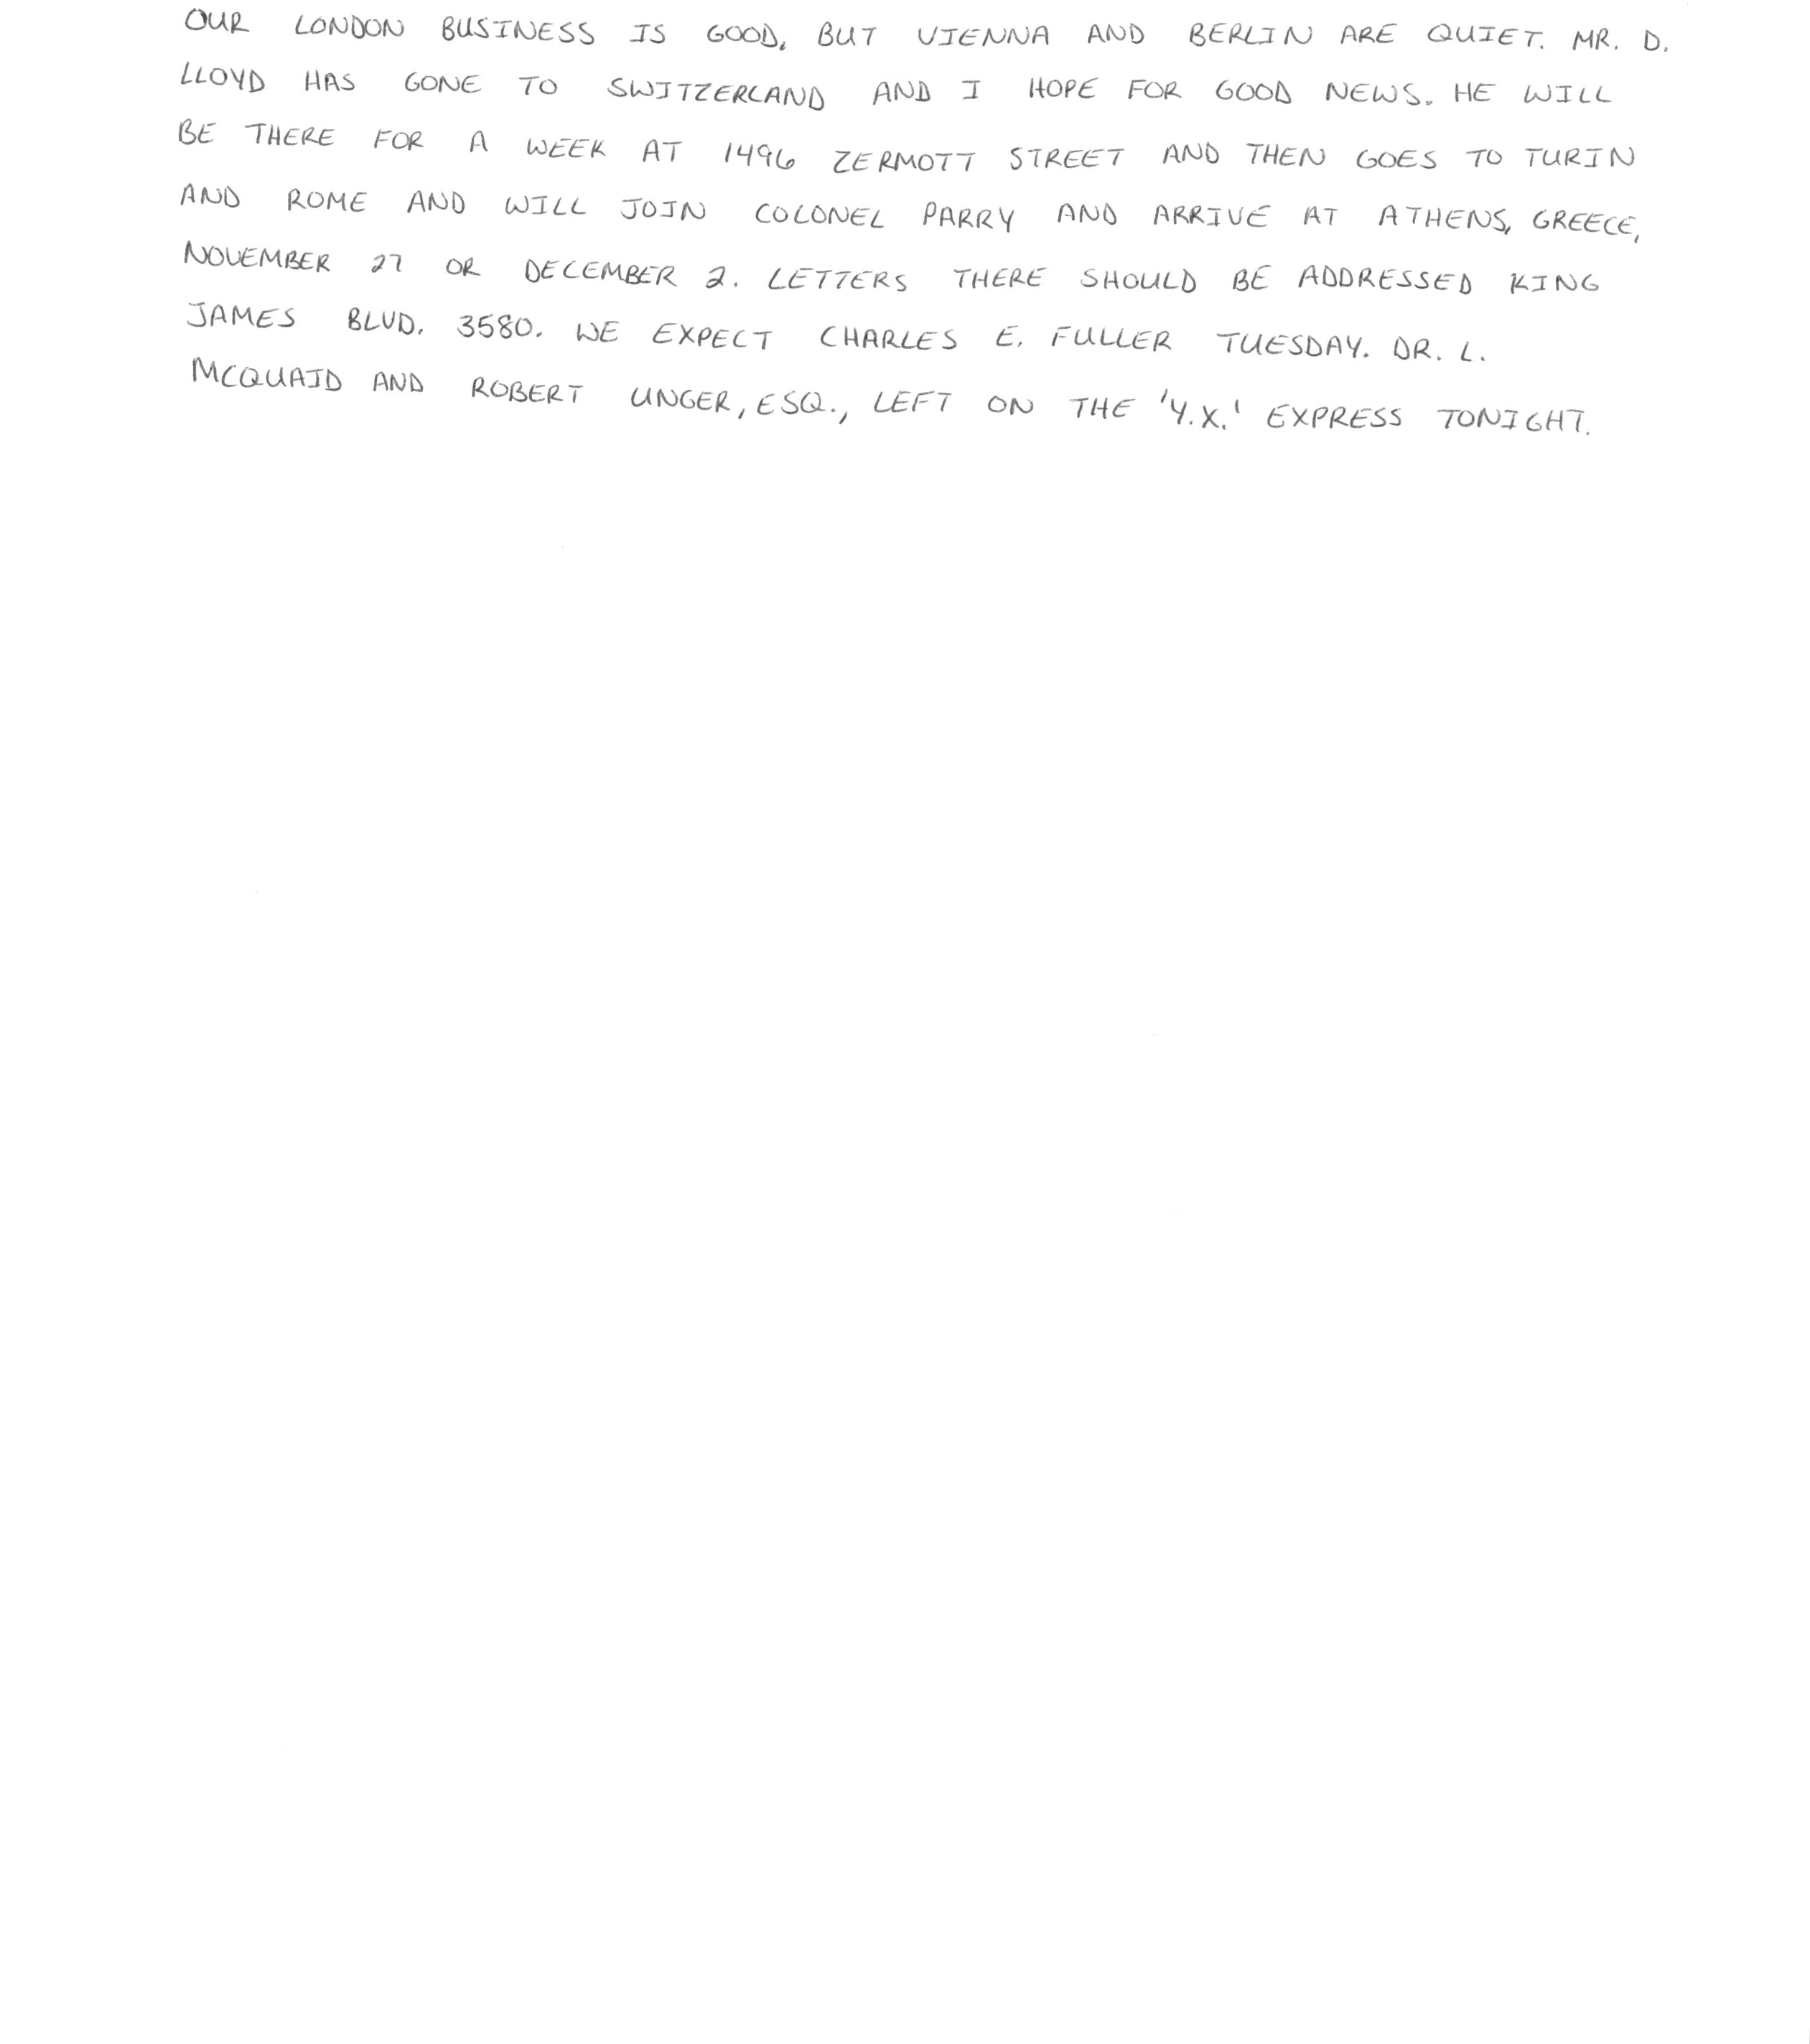 OUR LONDON BUSINESS IS GOOD, BUT VIENNA AND BERLIN ARE QUIET. MR. D.
LLOYD HAS GONE TO SWITZERLAND AND I HOPE FOR GOOD NEWS. HE WILL
BE THERE FOR A WEEK AT 1496 ZERMOTT STREET AND THEN GOES TO TURIN
AND ROME AND WILL JOIN COLONEL PARRY AND ARRIVE AT ATHENS, GREECE,
NOVEMBER 27 OR DECEMBER 2. LETTERS THERE SHOULD BE ADDRESSED KING
JAMES BLVD. 3580. WE EXPECT CHARLES E. FULLER TUESDAY. DR. L.
MCQUAID AND ROBERT UNGER, ESQ., LEFT ON THE 'Y.X.' EXPRESS TONIGHT.